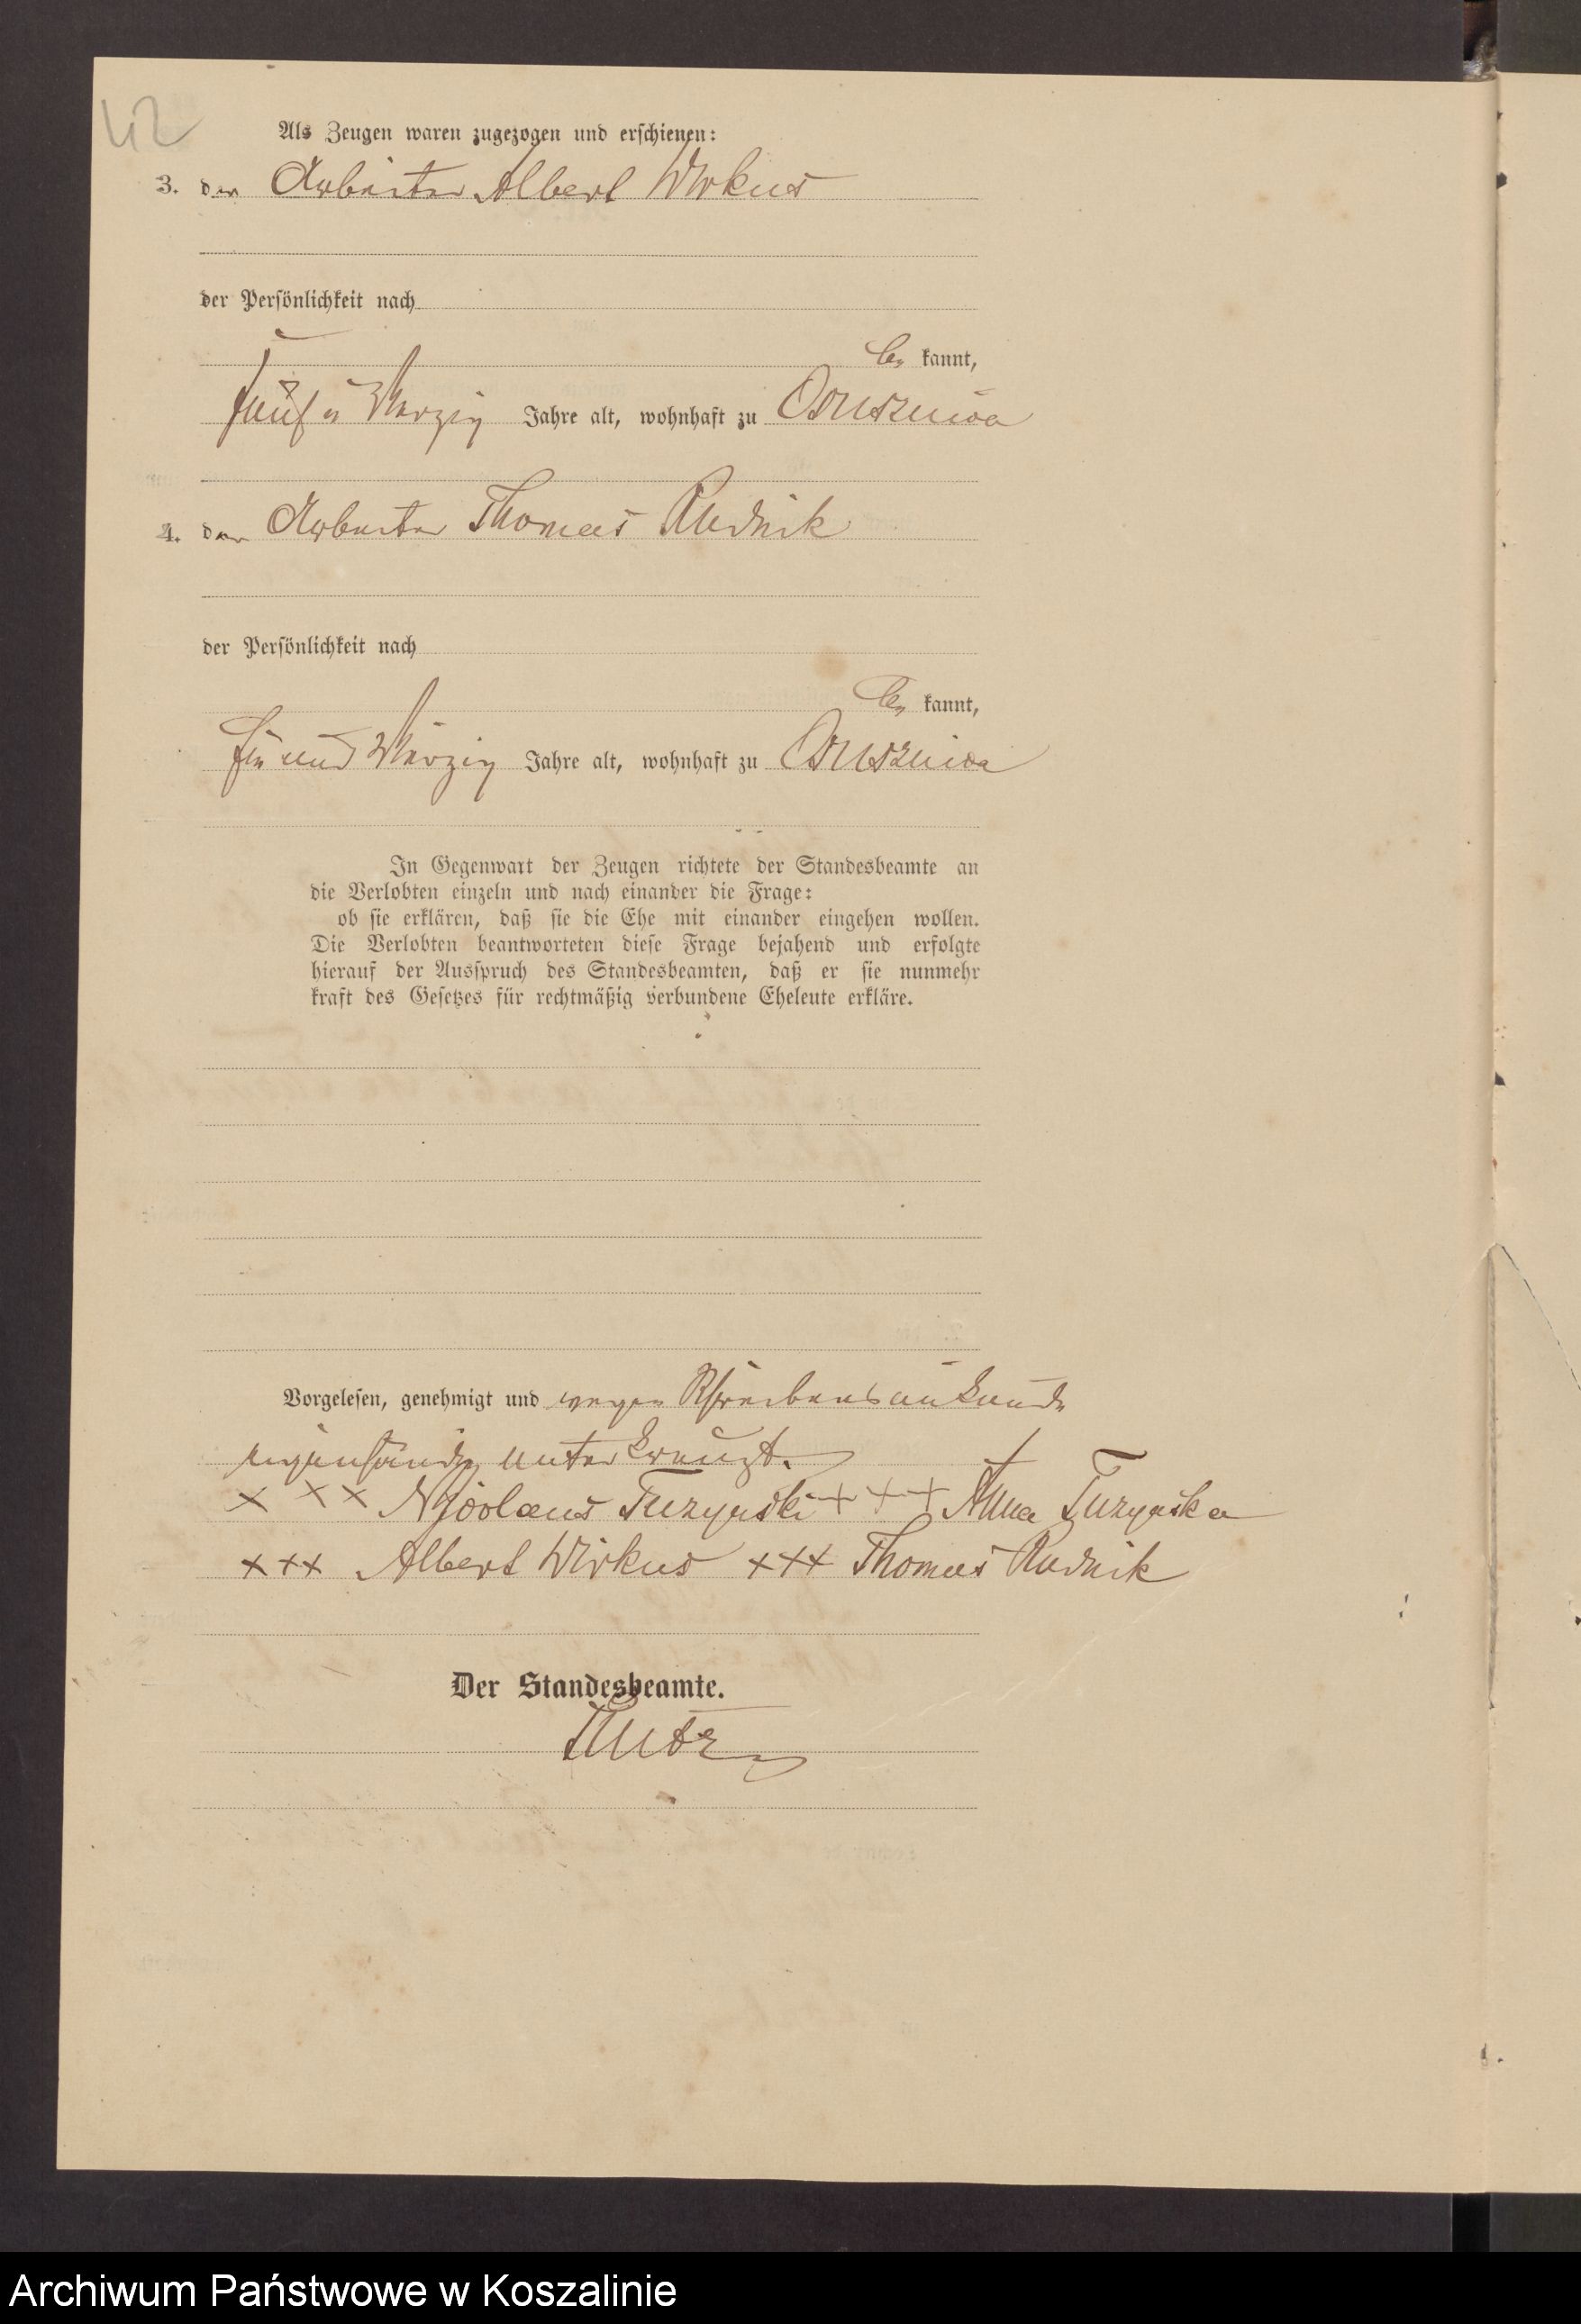 42
Als Zeugen waren zugezogen und erschienen:
3. der Arbeiter Albert Wirkus
der Persönlichkeit nach
be kannt,
fünf u Vierzig Jahre alt, wohnhaft zu
4. der Arbeiter Thomas Rudnik
der Persönlichkeit nach
be kannt,
und Vierzig Jahre alt, wohnhaft zu
In Gegenwart der Zeugen richtete der Standesbeamte an
die Verlobten einzeln und nach einander die Frage:
ob sie erklären, daß sie die Ehe mit einander eingehen wollen.
Die Verlobten beantworteten diese Frage bejahend und erfolgte
hierauf der Ausspruch des Standesbeamten, daß er sie nunmehr
kraft des Gesetzes für rechtmäßig verbundene Eheleute erkläre.
Vorgelesen, genehmigt und wegen Schreibensunkunde
eigenhändig unterkreuzt.
+++ Turzynski +++ Anna Turzynska
+++ Albert Wirkus +++ Thomas Rudnik
Der Standesbeamte.
Archiwum Państwowe w Koszalinie